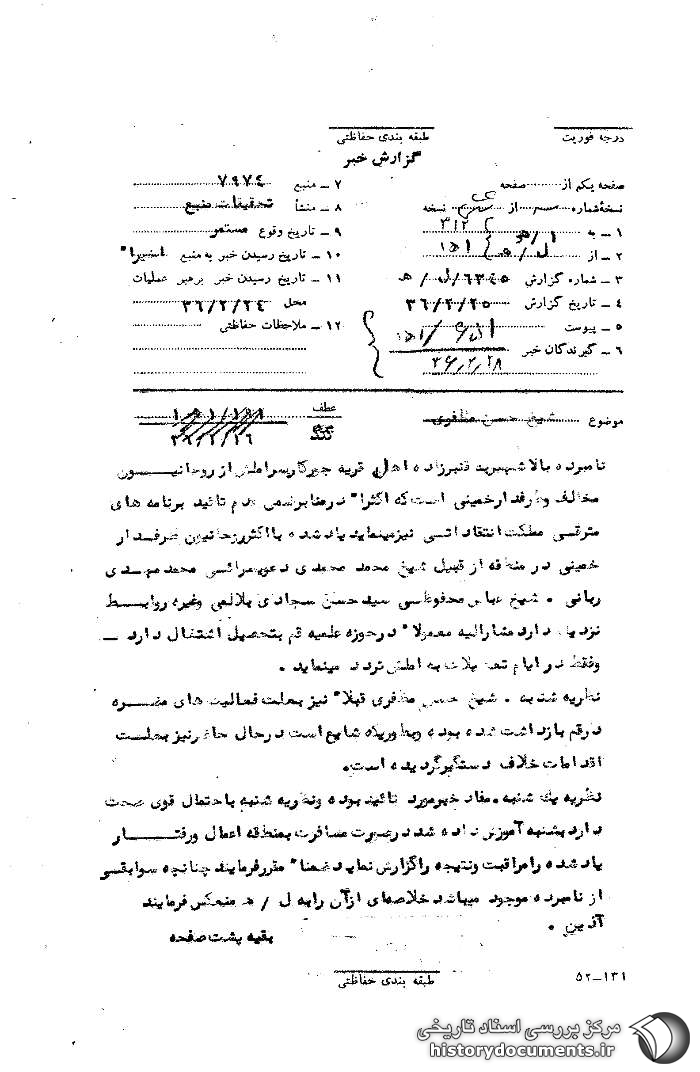 درجه فوریت
طبقه بندی حفاظتی
گزارش خبر
صفحه یکم از صفحه
نسخهٔ شماره از نسخه
۱ ـ به ۳۱۲
۲ ـ از
۳ ـ شماره گزارش ۶۳۴۵/ل/ه
۴ ـ تاریخ گزارش ۳۶/۲/۲۵
۵ ـ پیوست
۶ ـ گیرندگان خبر
۳۶٫۲٫۲۸
۷ ـ منبع ۷۹۷۴
۸ ـ منشأ تحقیقات منبع
۹ ـ تاریخ وقوع مستمر
۱۰ ـ تاریخ رسیدن خبر به منبع اخیرا"
۱۱ ـ تاریخ رسیدن خبر برهبر عملیات
محل ۳۶/۲/۲۴
۱۲ ـ ملاحظات حفاظتی
موضوع شیخ حسن مظفری
عطف
نامبرده بالا شهیر به قنبرزاده اهل قریه جیرکاسر املش از روحانیون
مخالف و طرفدار خمینی است که اکثرا" در منابر ضمن عدم تائید برنامه های
مترقی مملکت انتقاداتی نیز مینماید یاد شده با اکثر روحانیون طرفدار
خمینی در منطقه از قبیل شیخ محمد محمدی دعویسرائی محمد مهدی
ربانی ۰ شیخ عباس محفوظی سید حسن سجادی بلالمی وغیره روابط
نزدیک دارد مشارالیه معمولا" در حوزه علمیه قم بتحصیل اشتغال دارد ـ
وفقط در ایام تعطیلات به املش تردد مینماید ۰
نظریه شنبه ۰ شیخ حسن مظفری قبلا" نیز بعلت فعالیت های مضره
در قم بازداشت شده بوده و بطوریکه شایع است در حال حاضر نیز بعلت
اقدامات خلاف دستگیر گردیده است۰
نظریه یک شنبه ۰ مفاد خبر مورد تائید بوده ونظریه شنبه با احتمال قوی صحت
دارد بشنبه آموزش داده شد در صورت مسافرت بمنطقه اعمال ورفتار
یاد شده را مراقبت ونتیجه را گزارش نماید ضمنا" مقرر فرمایند چنانچه سوابقی
از نامبرده موجود میباشد خلاصه‌ای از آن را به ل / ه منعکس فرمایند
آذین ۰
بقیه پشت صفحه
طبقه بندی حفاظتی
۵۲-۱۳۱
مرکز بررسی اسناد تاریخی
historydocuments.ir